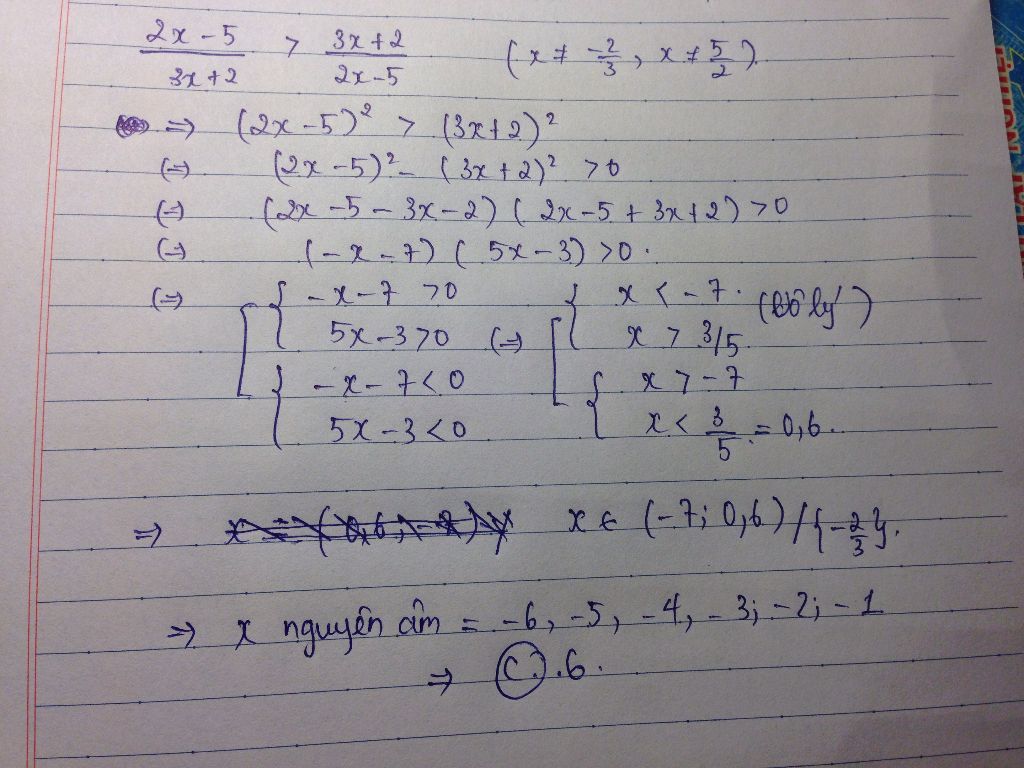 (2x - 5)/(3x + 2) > (3x + 2)/(2x - 5) (x ≠ -2/3, x ≠ 5/2).
=> (2x - 5)² > (3x + 2)²
(=) (2x - 5)² - (3x + 2)² > 0
(=) (2x - 5 - 3x - 2) (2x - 5 + 3x + 2) > 0
(=) (-x - 7) (5x - 3) > 0.
(=) [ { -x - 7 > 0 [ { x < -7. (Vô lý)
5x - 3 > 0 (=) x > 3/5
{ -x - 7 < 0 { x > -7
5x - 3 < 0 x < 3/5 = 0,6.
=> x ∈ (-7; 0,6) / {-2/3}.
=> x nguyên âm = -6, -5, -4, -3; -2; -1
=> C. 6.